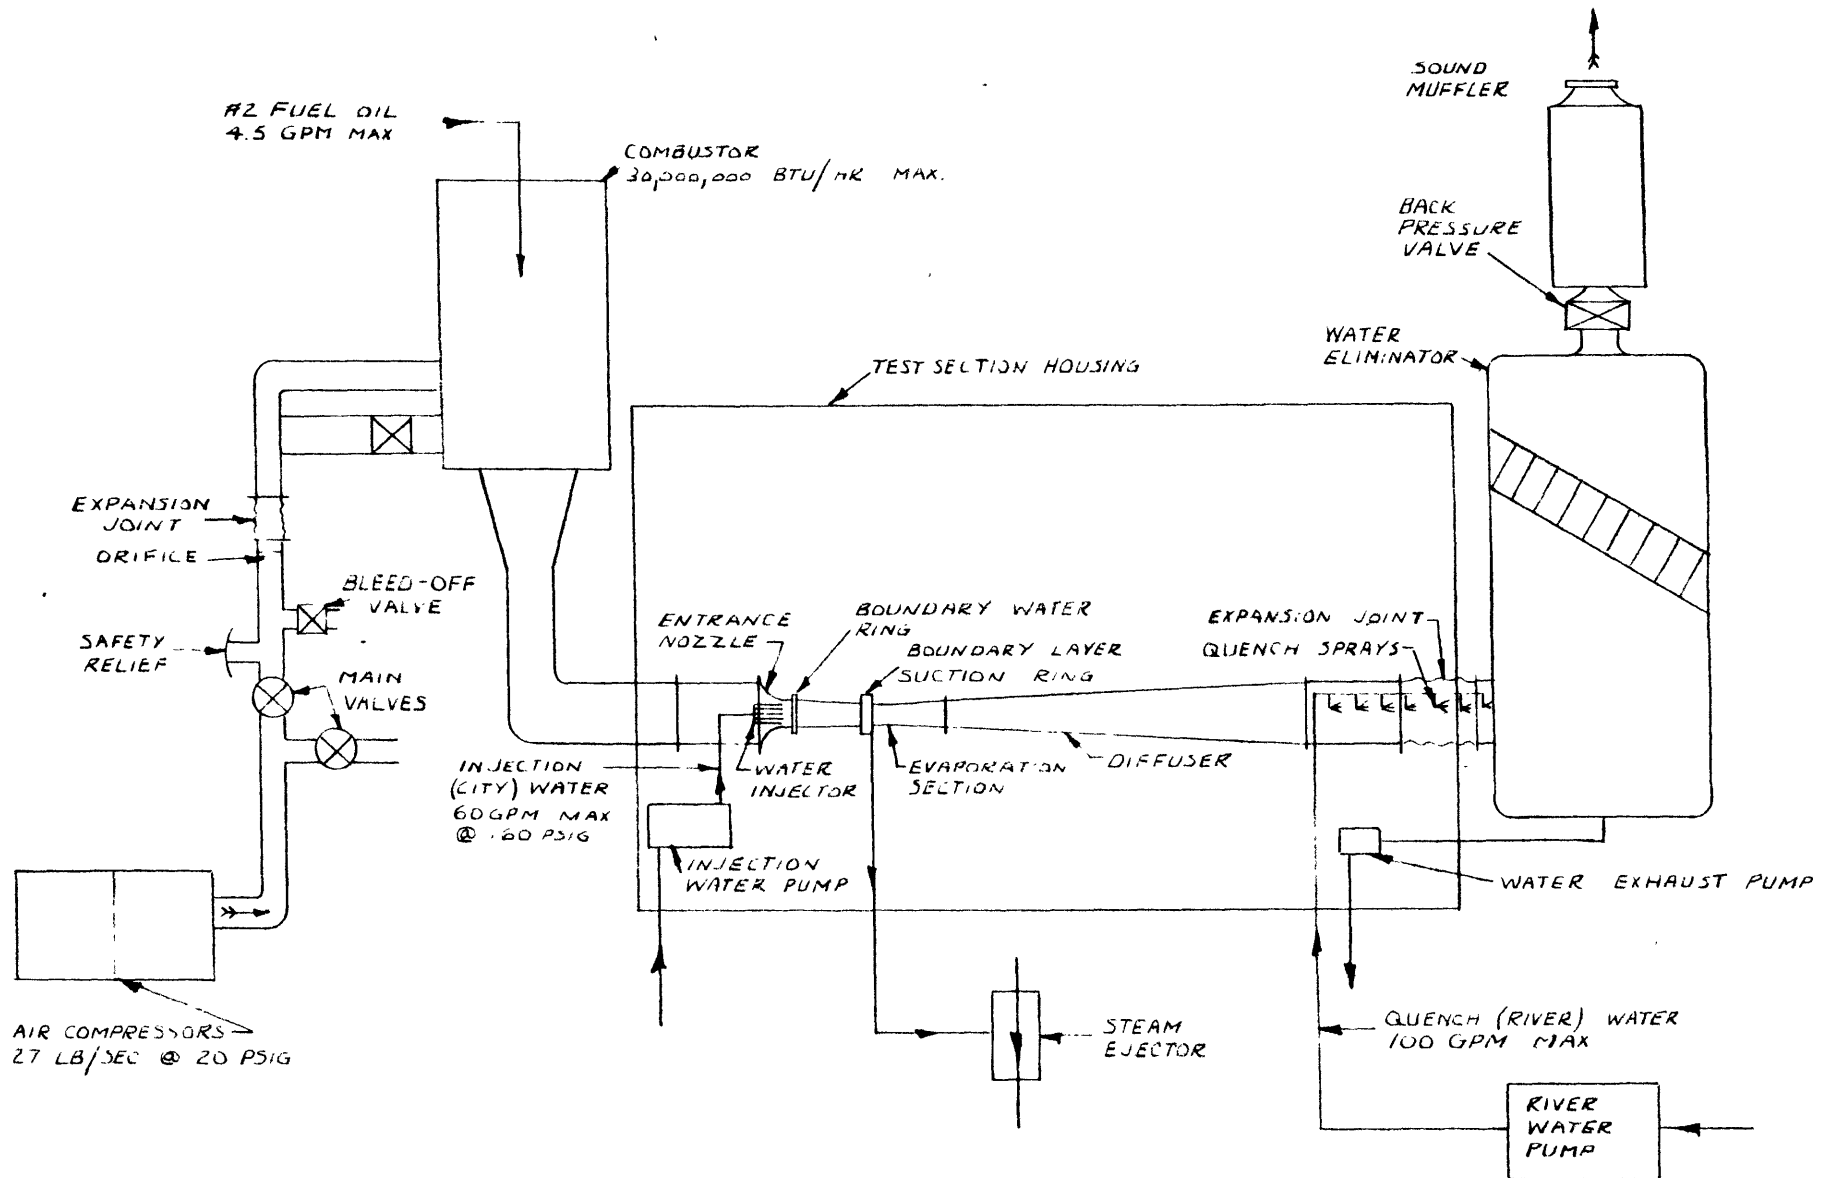 SOUND
MUFFLER
#2 FUEL OIL
4.5 GPM MAX
COMBUSTOR
30,000,000 BTU/HR MAX.
BACK
PRESSURE
VALVE
WATER
ELIMINATOR
TEST SECTION HOUSING
EXPANSION
JOINT
ORIFICE
BLEED-OFF
VALVE
SAFETY
RELIEF
MAIN
VALVES
ENTRANCE
NOZZLE
BOUNDARY WATER
RING
BOUNDARY LAYER
SUCTION RING
EXPANSION JOINT
QUENCH SPRAYS
INJECTION
(CITY) WATER
60 GPM MAX
@ 60 PSIG
WATER
INJECTOR
EVAPORATION
SECTION
DIFFUSER
INJECTION
WATER PUMP
WATER EXHAUST PUMP
AIR COMPRESSORS
27 LB/SEC @ 20 PSIG
STEAM
EJECTOR
QUENCH (RIVER) WATER
100 GPM MAX
RIVER
WATER
PUMP